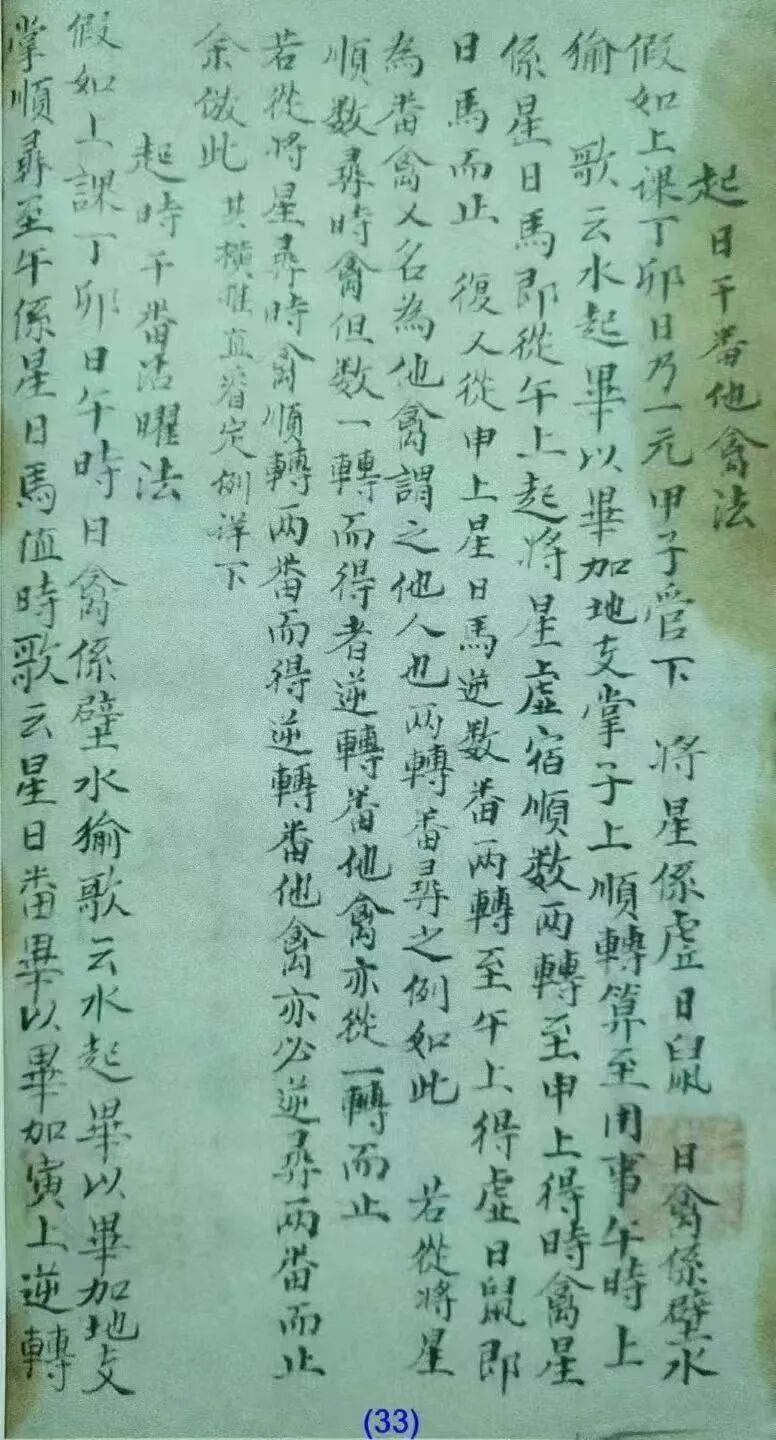 起日干番他禽法
假如上課丁卯日乃一元甲子管下 將星係虛日鼠 日禽係壁水
㺄 歌云水起畢以畢加地支掌子上順轉算至用事午時上
係星日馬即從午上起將星虛宿順数两轉至申上得時禽星
日馬而止 復又從申上星日馬逆数番两轉至午上得虛日鼠即
為番禽又名為他禽謂之他人也两轉番尋之例如此 若從將星
順数尋時禽但数一轉而得者逆轉番他禽亦從一轉而止
若從將星尋時禽順轉两番而得逆轉番他禽亦必逆尋两番而止
余倣此 其橫推直看定例详下
起時干番活曜法
假如上課丁卯日午時日禽係壁水㺄歌云水起畢以畢加地支
掌順尋至午係星日馬值時歌云星日番畢以畢加寅上逆轉
(33)